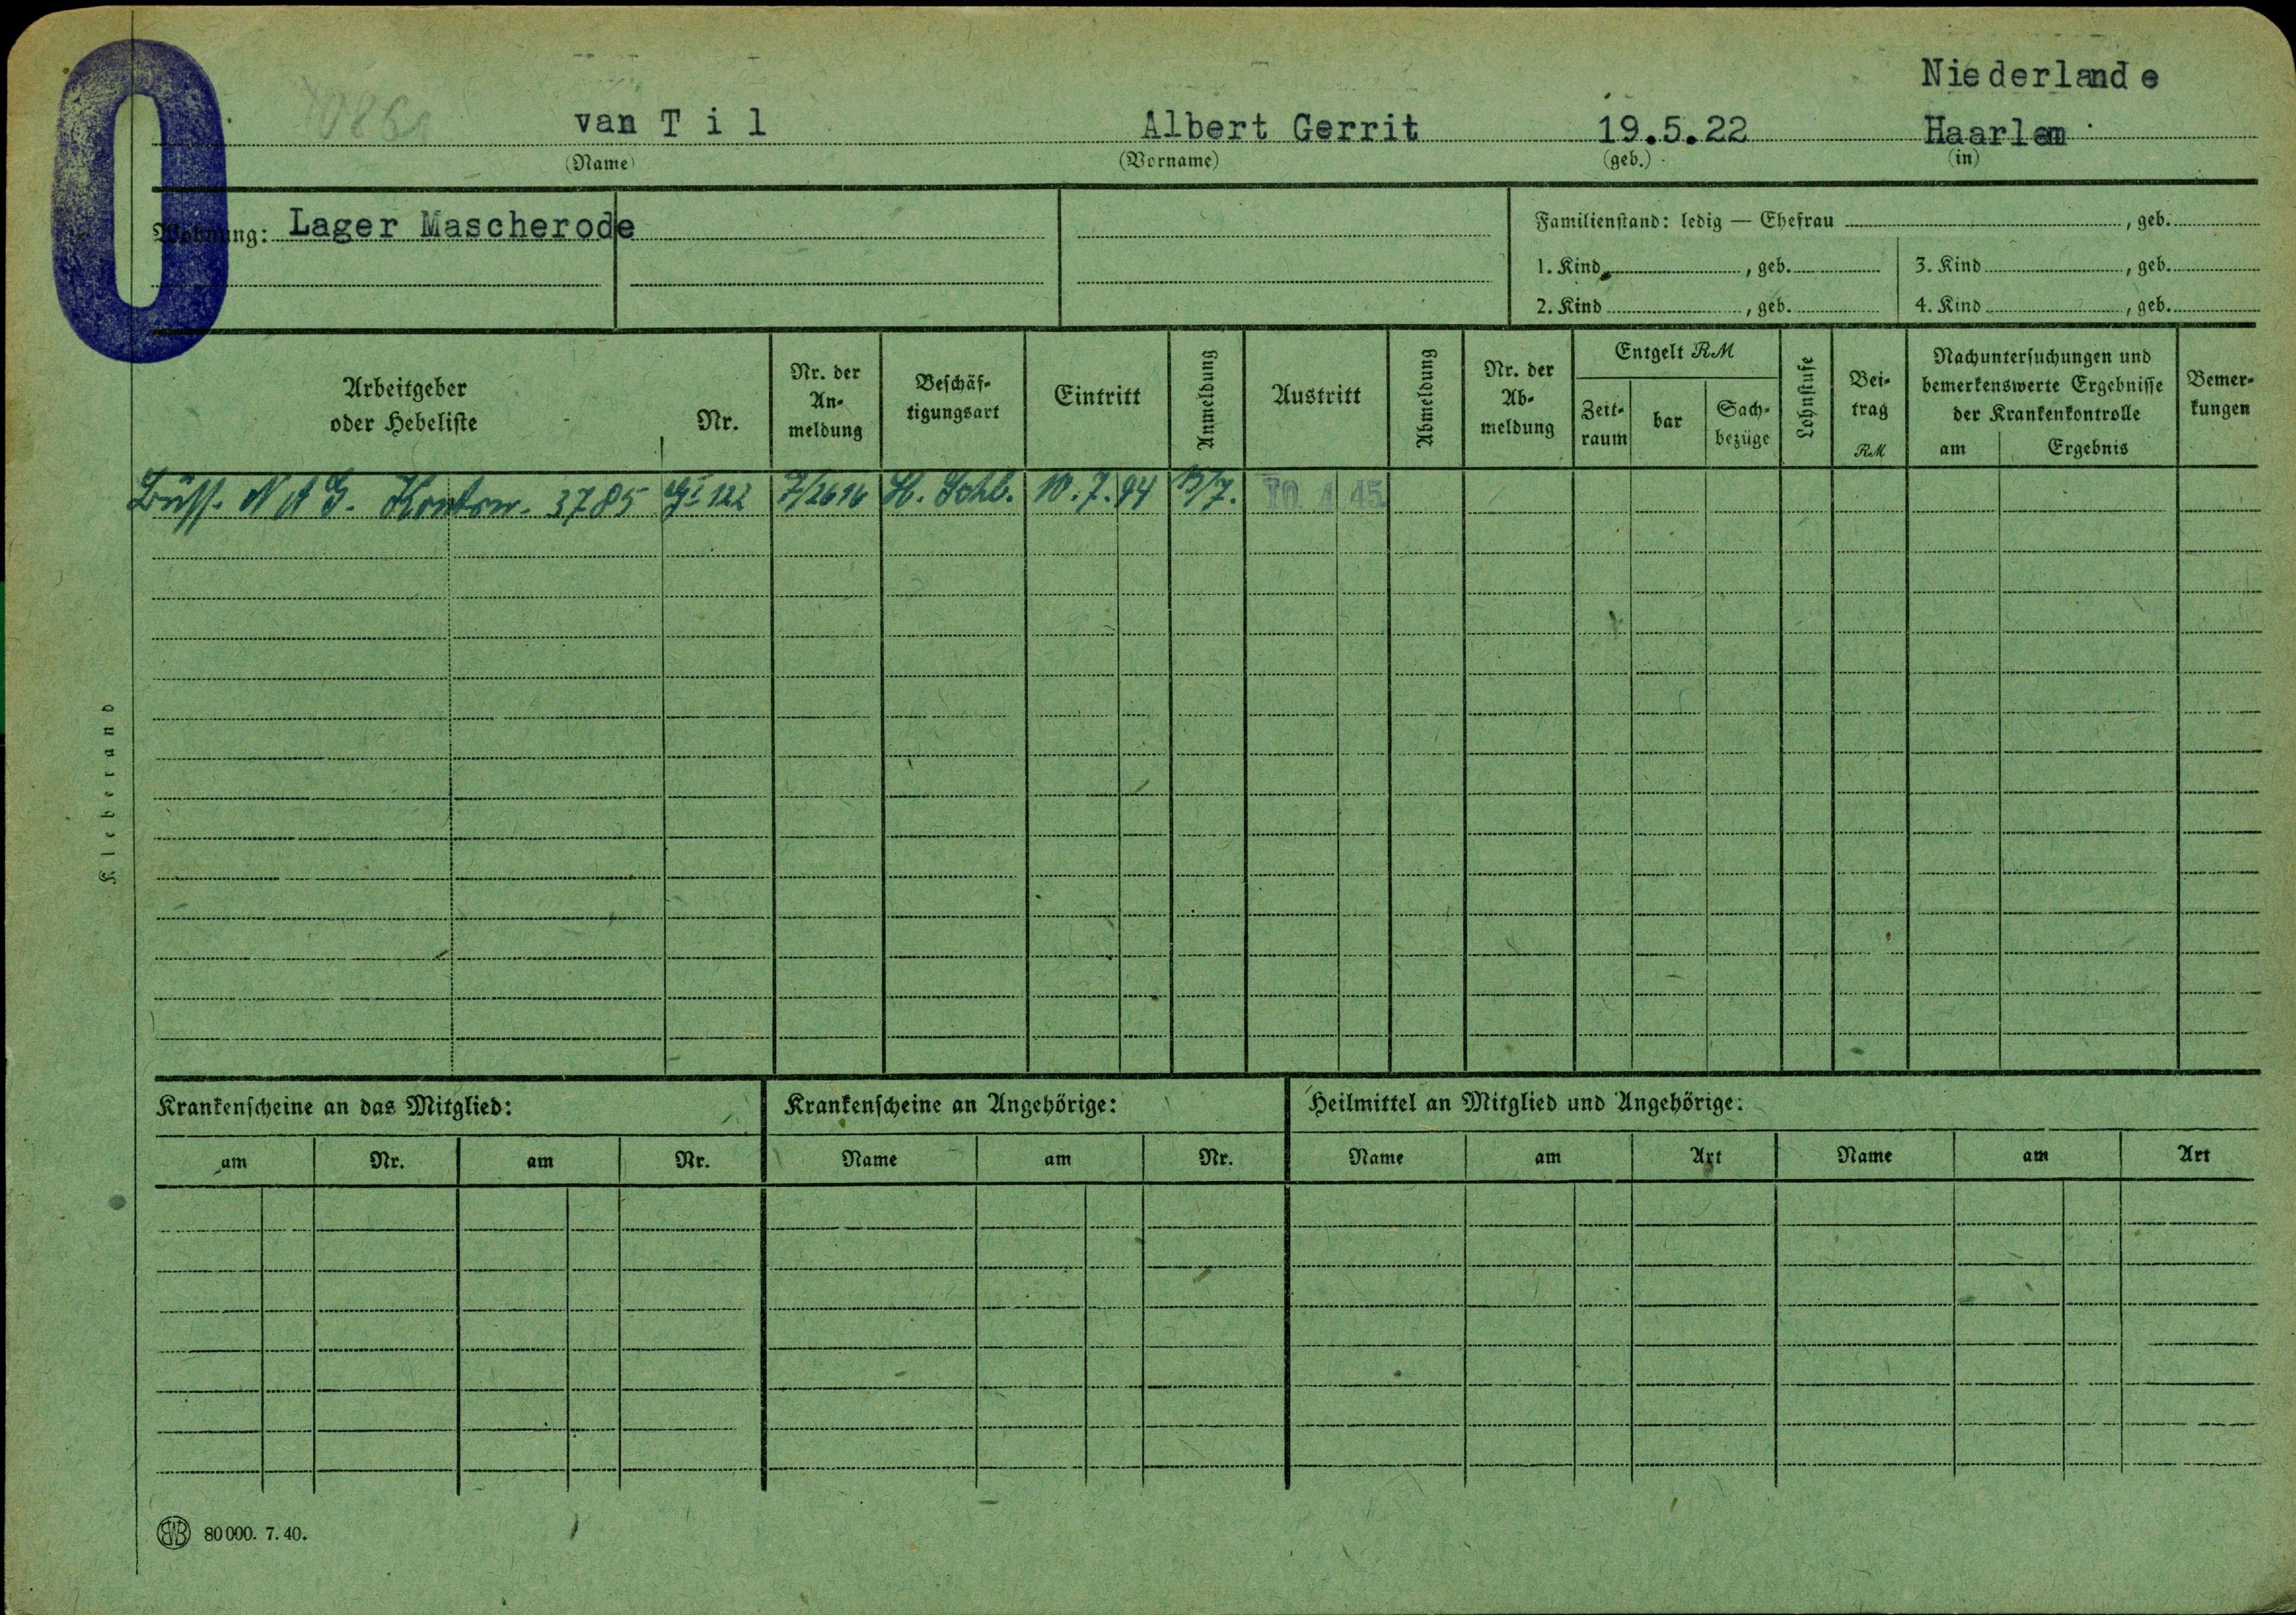 O
Niederlande
van T i l Albert Gerrit 19.5.22 Haarlem
(Name) (Vorname) (geb.) (in)
Wohnung: Lager Mascherode
Familienstand: ledig — Ehefrau , geb.
1. Kind , geb. 3. Kind , geb.
2. Kind , geb. 4. Kind , geb.
Arbeitgeber oder Hebeliste Nr. Nr. der An-meldung Beschäf-tigungsart Eintritt Anmeldung Austritt Abmeldung Nr. der Ab-meldung Entgelt RM Zeit-raum bar Sach-bezüge Lohnstufe Bei-trag RM Nachuntersuchungen und bemerkenswerte Ergebnisse der Krankenkontrolle am Ergebnis Bemer-kungen
Büss. NAG. 3785 122 7/2616 H. Schl. 10.7.44 13/7. 10. 4. 45
Kleberand
Krankenscheine an das Mitglied: Krankenscheine an Angehörige: Heilmittel an Mitglied und Angehörige:
am Nr. am Nr. Name am Nr. Name am Art Name am Art
80000. 7. 40.